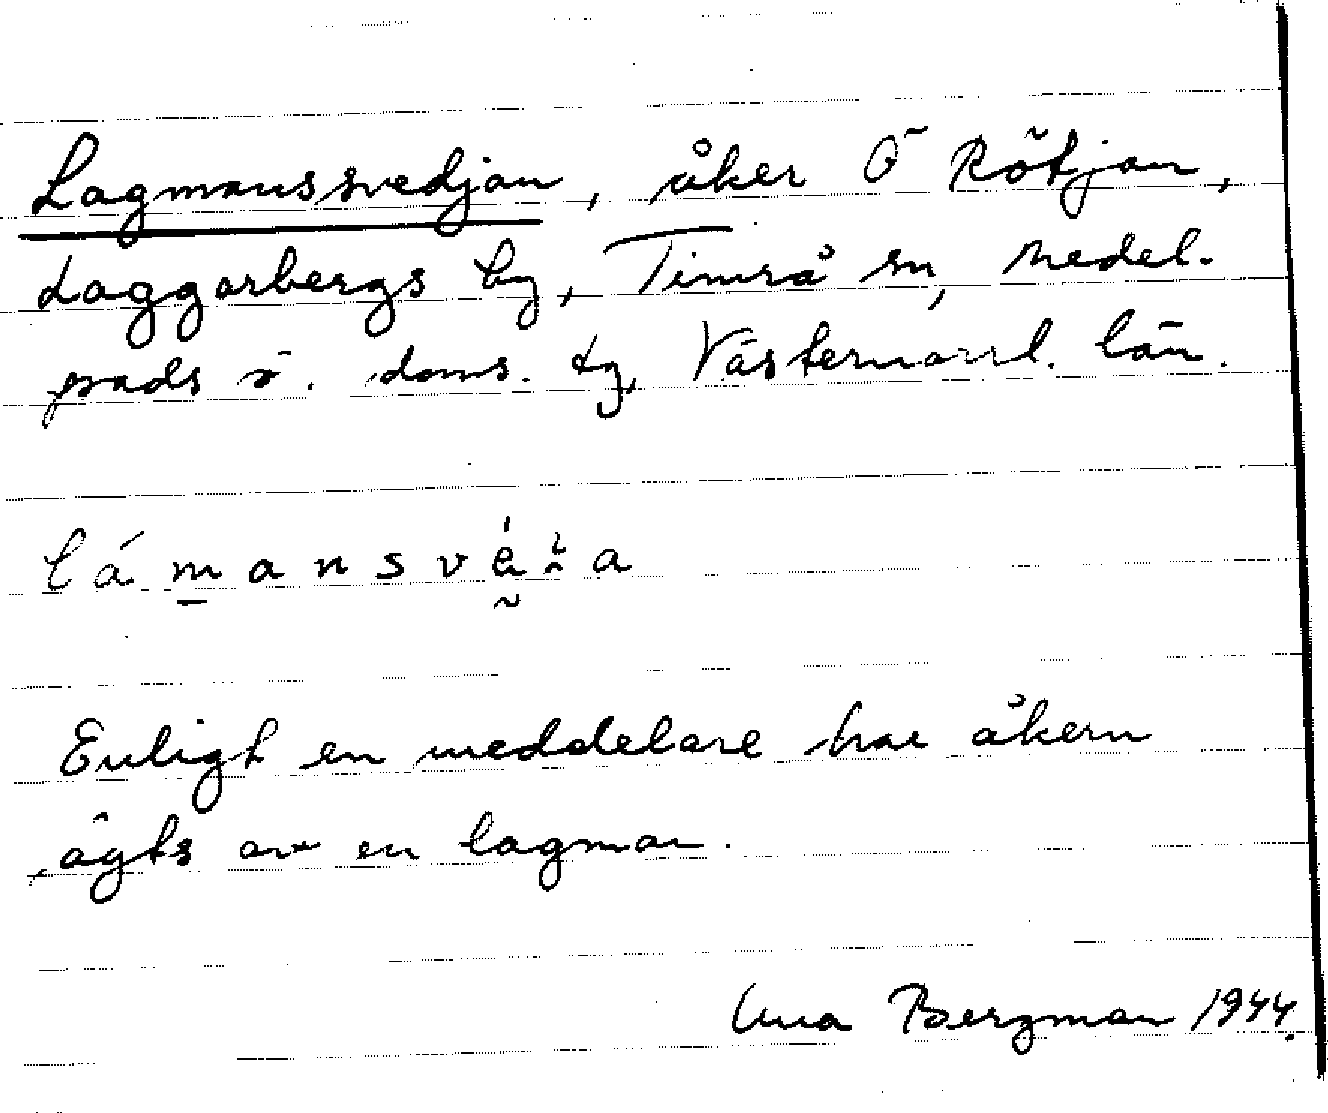 Lagmanssvedjan, åker Ö Rötjan,
Laggarbergs by, Timrå sn, Medel-
pads ö. doms. tg, Västernorrl. län.
lámansv
Enligt en meddelare har åkern
ägts av en lagman.
Bergman 1944.